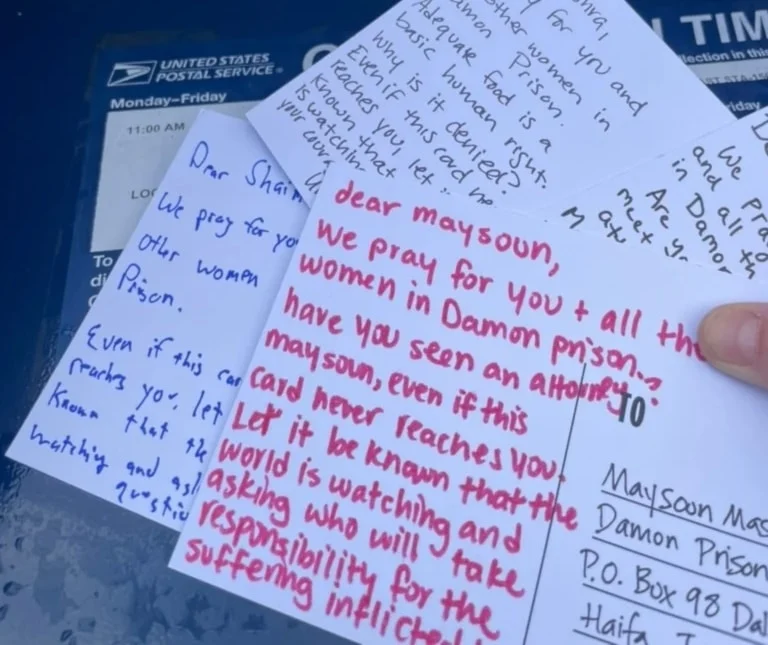 UNITED STATES
POSTAL SERVICE®
Monday–Friday
11:00 AM
TIM
for you and
other women in
Prison.
Adequate food is a
basic human right.
Why is it denied?
Even if this card
reaches you, let
known that
is watchin
your
Dear
We pray for yo
other women
Prison.
Even if this
reaches you, let
known that the
watching and
questio
We
and all
in Damo
Are
meet
dear maysoun,
We pray for you + all the
women in Damon prison.
have you seen an attorney?
maysoun, even if this
card never reaches you.
Let it be known that the
world is watching and
asking who will take
responsibility for the
suffering inflicted
TO
Maysoon Mas
Damon Prison
P.O. Box 98 Dal
Haifa